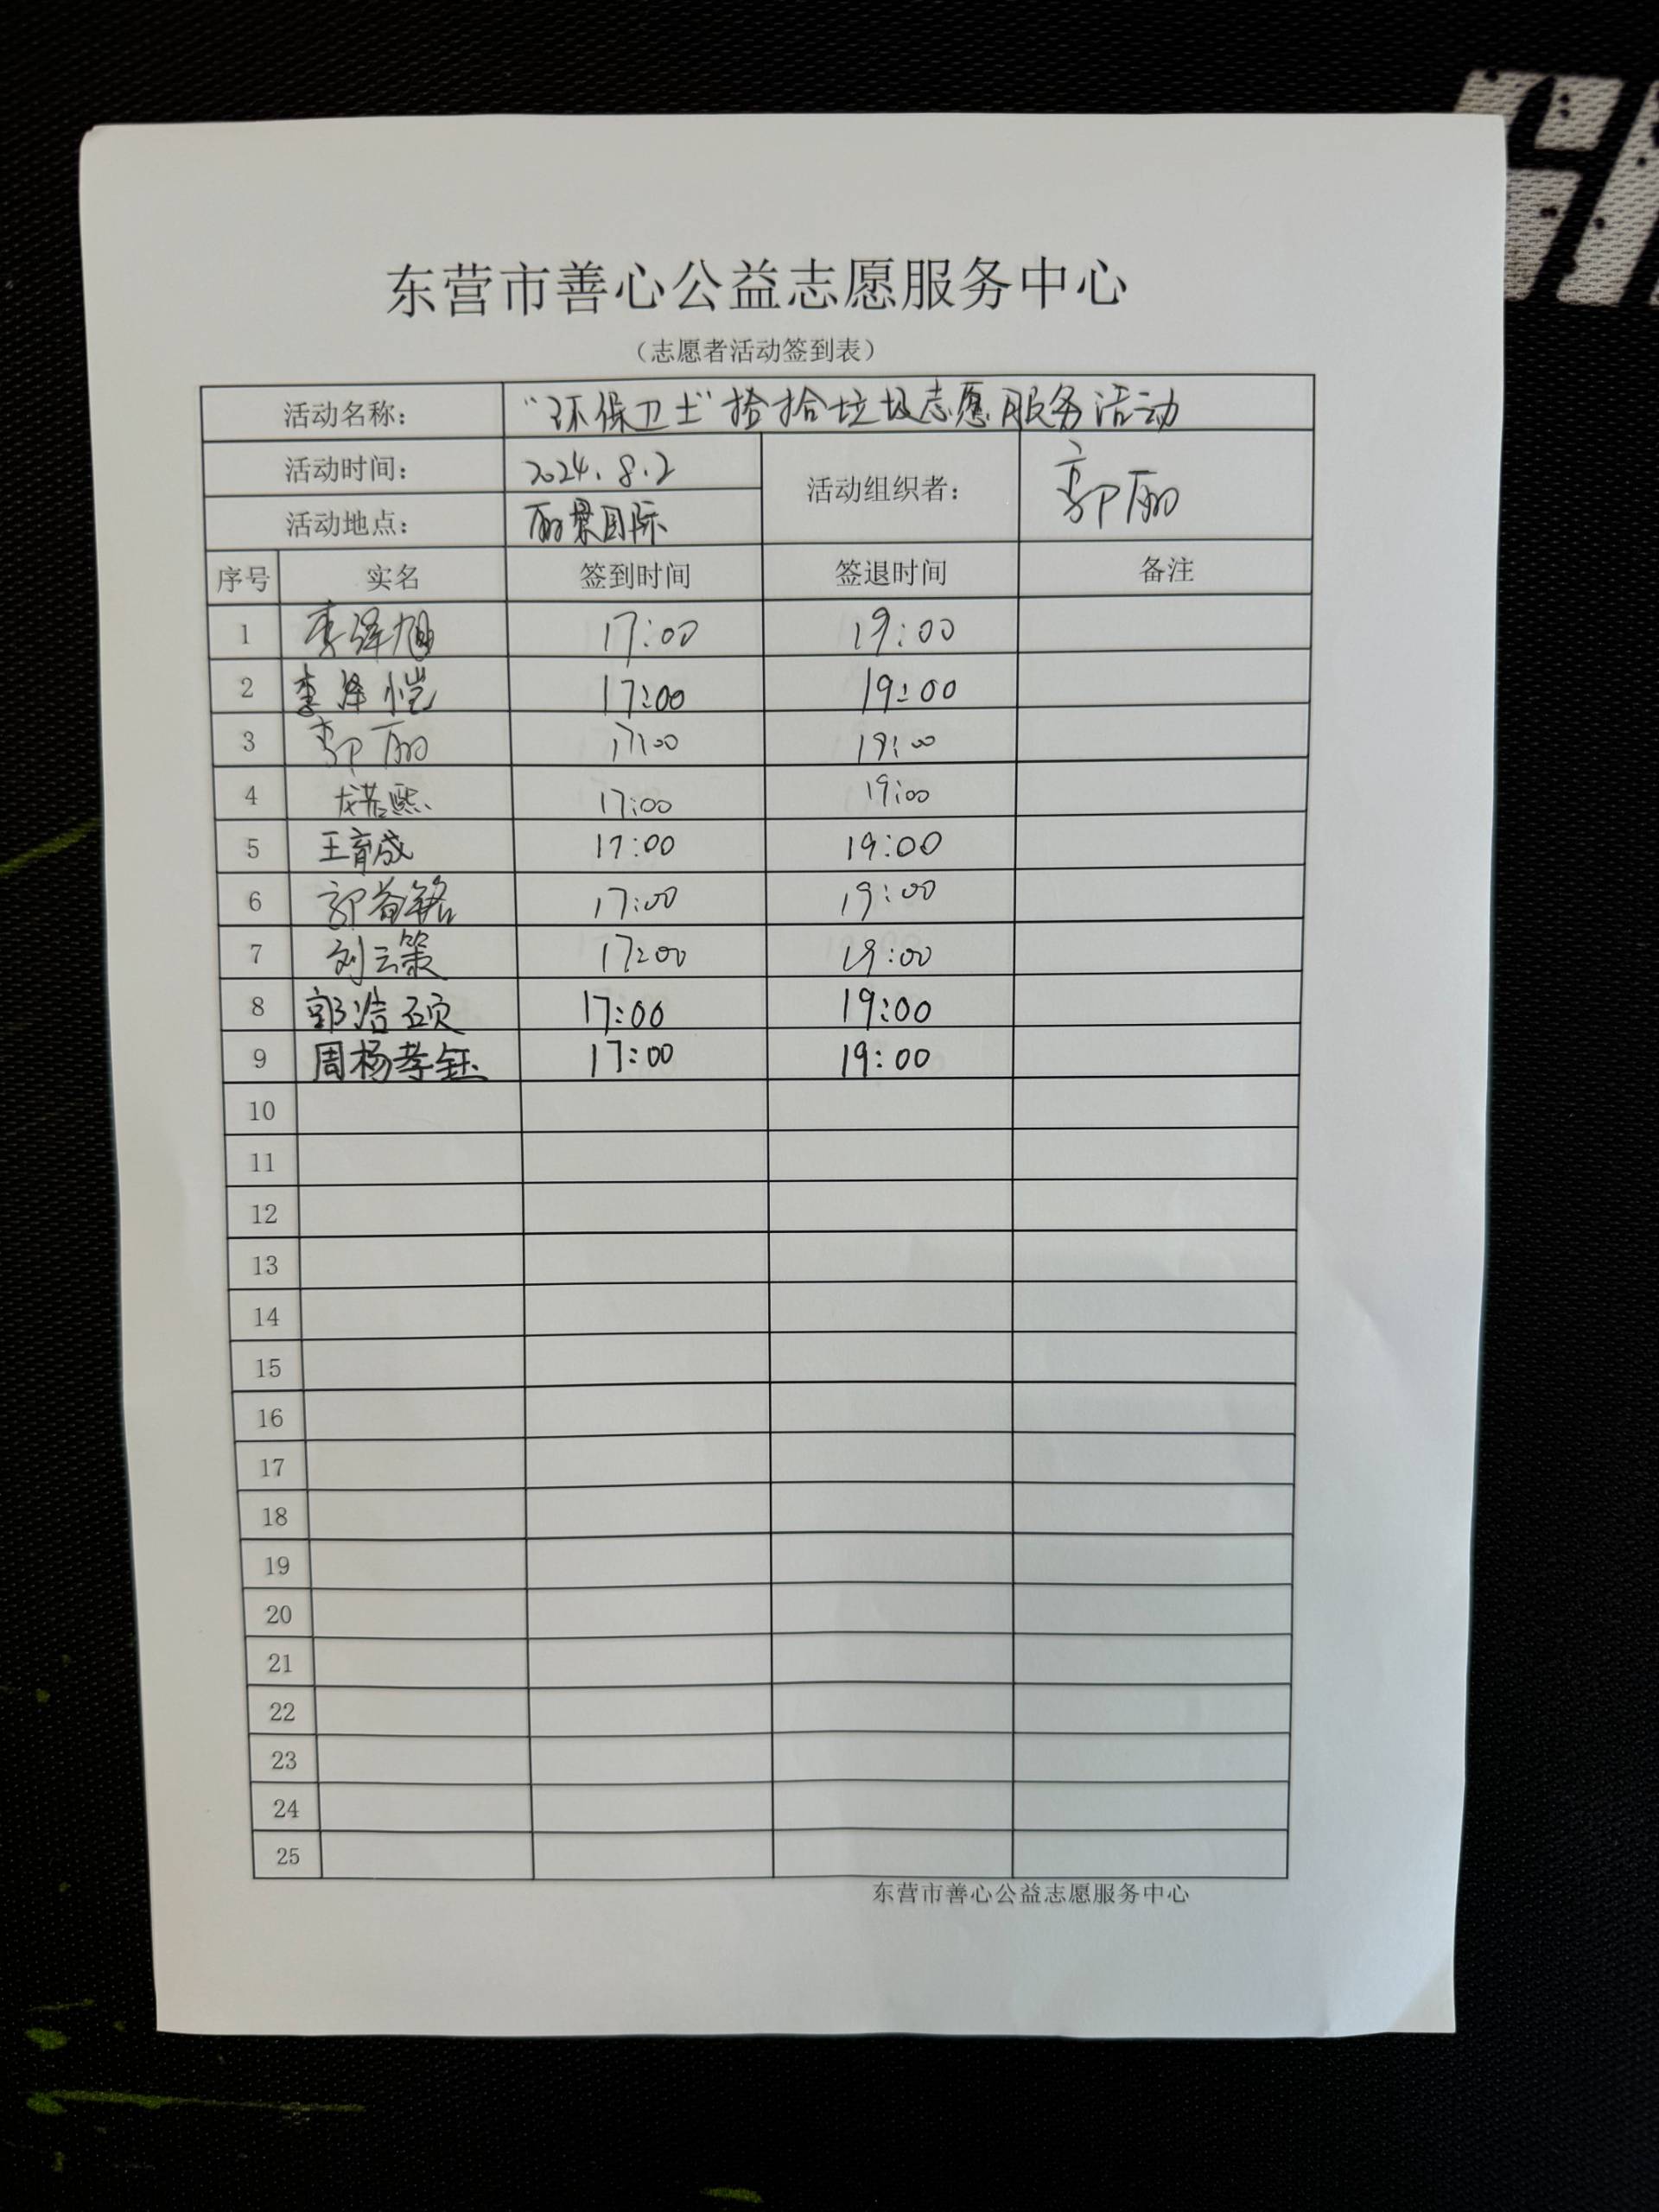 东营市善心公益志愿服务中心
（志愿者活动签到表）
活动名称： “环保卫士”捡拾垃圾志愿服务活动
活动时间： 2024.8.2 活动组织者： 郭丽
活动地点： 丽景国际
序号 实名 签到时间 签退时间 备注
1 李泽旭 17:00 19:00
2 李泽恺 17:00 19:00
3 郭丽 17:00 19:00
4 龙若熙 17:00 19:00
5 王育成 17:00 19:00
6 郭益铭 17:00 19:00
7 刘云策 17:00 19:00
8 郭浩硕 17:00 19:00
9 周杨孝钰 17:00 19:00
10
11
12
13
14
15
16
17
18
19
20
21
22
23
24
25
东营市善心公益志愿服务中心